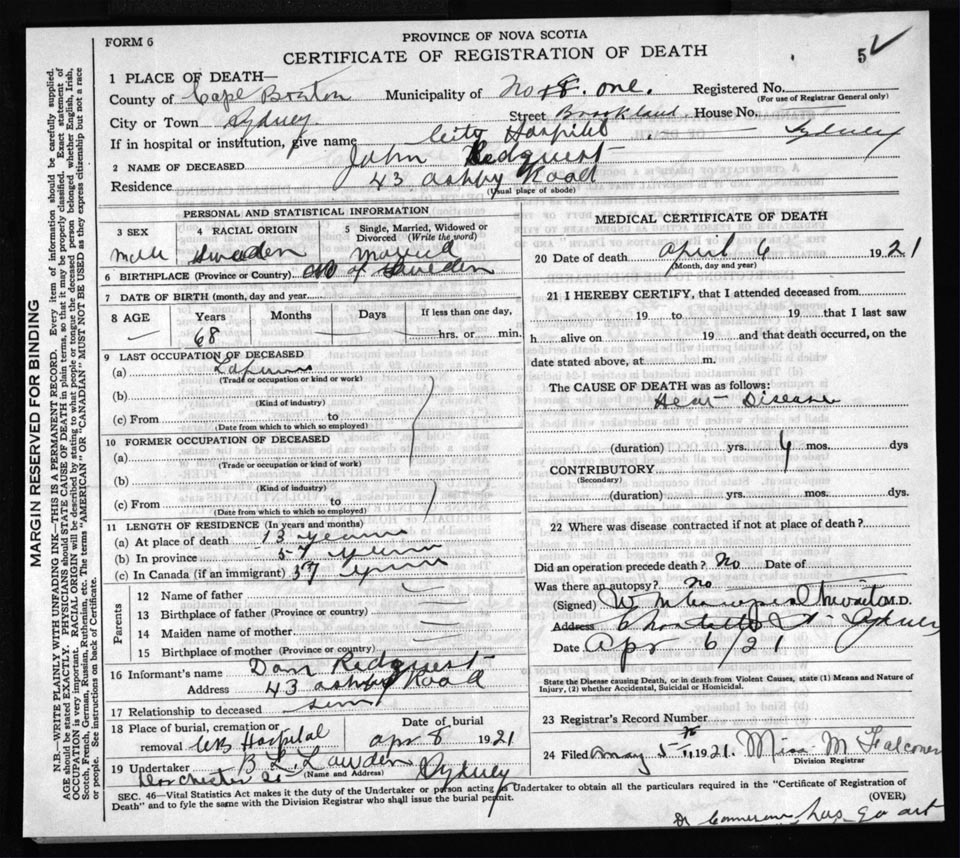 FORM 6
PROVINCE OF NOVA SCOTIA
CERTIFICATE OF REGISTRATION OF DEATH
5
1 PLACE OF DEATH—
County of Cape Breton Municipality of No 8. one. Registered No.
(For use of Registrar General only)
City or Town Sydney. Street Brookland House No.
If in hospital or institution, give name City Hospital Sydney
2 NAME OF DECEASED John Redquest
Residence 43 Ashby Road
(Usual place of abode)
PERSONAL AND STATISTICAL INFORMATION
3 SEX
Male
4 RACIAL ORIGIN
Sweden
5 Single, Married, Widowed or Divorced (Write the word)
Married
6 BIRTHPLACE (Province or Country) of Sweden
7 DATE OF BIRTH (month, day and year)
8 AGE Years Months Days If less than one day,
— 68 — — hrs. or min.
9 LAST OCCUPATION OF DECEASED
(a)
(Trade or occupation or kind or work)
(b)
(Kind of industry)
(c) From to
(Date from which to which so employed)
10 FORMER OCCUPATION OF DECEASED
(a)
(Trade or occupation or kind or work)
(b)
(Kind of industry)
(c) From to
(Date from which to which so employed)
11 LENGTH OF RESIDENCE (In years and months)
(a) At place of death 13 years
(b) In province 57 years
(c) In Canada (if an immigrant) 57 years
Parents
12 Name of father
13 Birthplace of father (Province or country)
14 Maiden name of mother
15 Birthplace of mother (Province or country)
16 Informant's name Dan Redquest
Address 43 Ashby Road
17 Relationship to deceased son
18 Place of burial, cremation or removal Hospital
Date of burial
Apr 8 1921
19 Undertaker B. L. Lowden Sydney
Dorchester St (Name and Address)
MEDICAL CERTIFICATE OF DEATH
20 Date of death April 6 1921
(Month, day and year)
21 I HEREBY CERTIFY, that I attended deceased from
19 to 19 that I last saw
h alive on 19 and that death occurred, on the
date stated above, at m.
The CAUSE OF DEATH was as follows:
Heart Disease
(duration) yrs. 4 mos. dys
CONTRIBUTORY
(Secondary)
(duration) yrs. mos. dys.
22 Where was disease contracted if not at place of death?
Did an operation precede death? No Date of
Was there an autopsy? No
(Signed) M.D.
Address Charlotte St. Sydney
Date Apr 6/21
State the Disease causing Death, or in death from Violent Causes, state (1) Means and Nature of Injury, (2) whether Accidental, Suicidal or Homicidal.
23 Registrar's Record Number
24 Filed May 5th 1921. Miss M Falconer
Division Registrar
SEC. 46—Vital Statistics Act makes it the duty of the Undertaker or person acting as Undertaker to obtain all the particulars required in the "Certificate of Registration of
Death" and to fyle the same with the Division Registrar who shall issue the burial permit. (OVER)
MARGIN RESERVED FOR BINDING
N.B.—WRITE PLAINLY WITH UNFADING INK—THIS IS A PERMANENT RECORD. Every item of information should be carefully supplied.
AGE should be stated EXACTLY. PHYSICIANS should STATE CAUSE OF DEATH in plain terms, so that it may be properly classified. Exact statement of
OCCUPATION is very important. RACIAL ORIGIN will be described by stating to what people or tongue the deceased person belonged whether English, Irish,
Scotch, French, German, Russian, Ruthenian, etc. The terms "AMERICAN" OR "CANADIAN" MUST NOT BE USED as they express citizenship but not a race
or people. See instructions on back of Certificate.